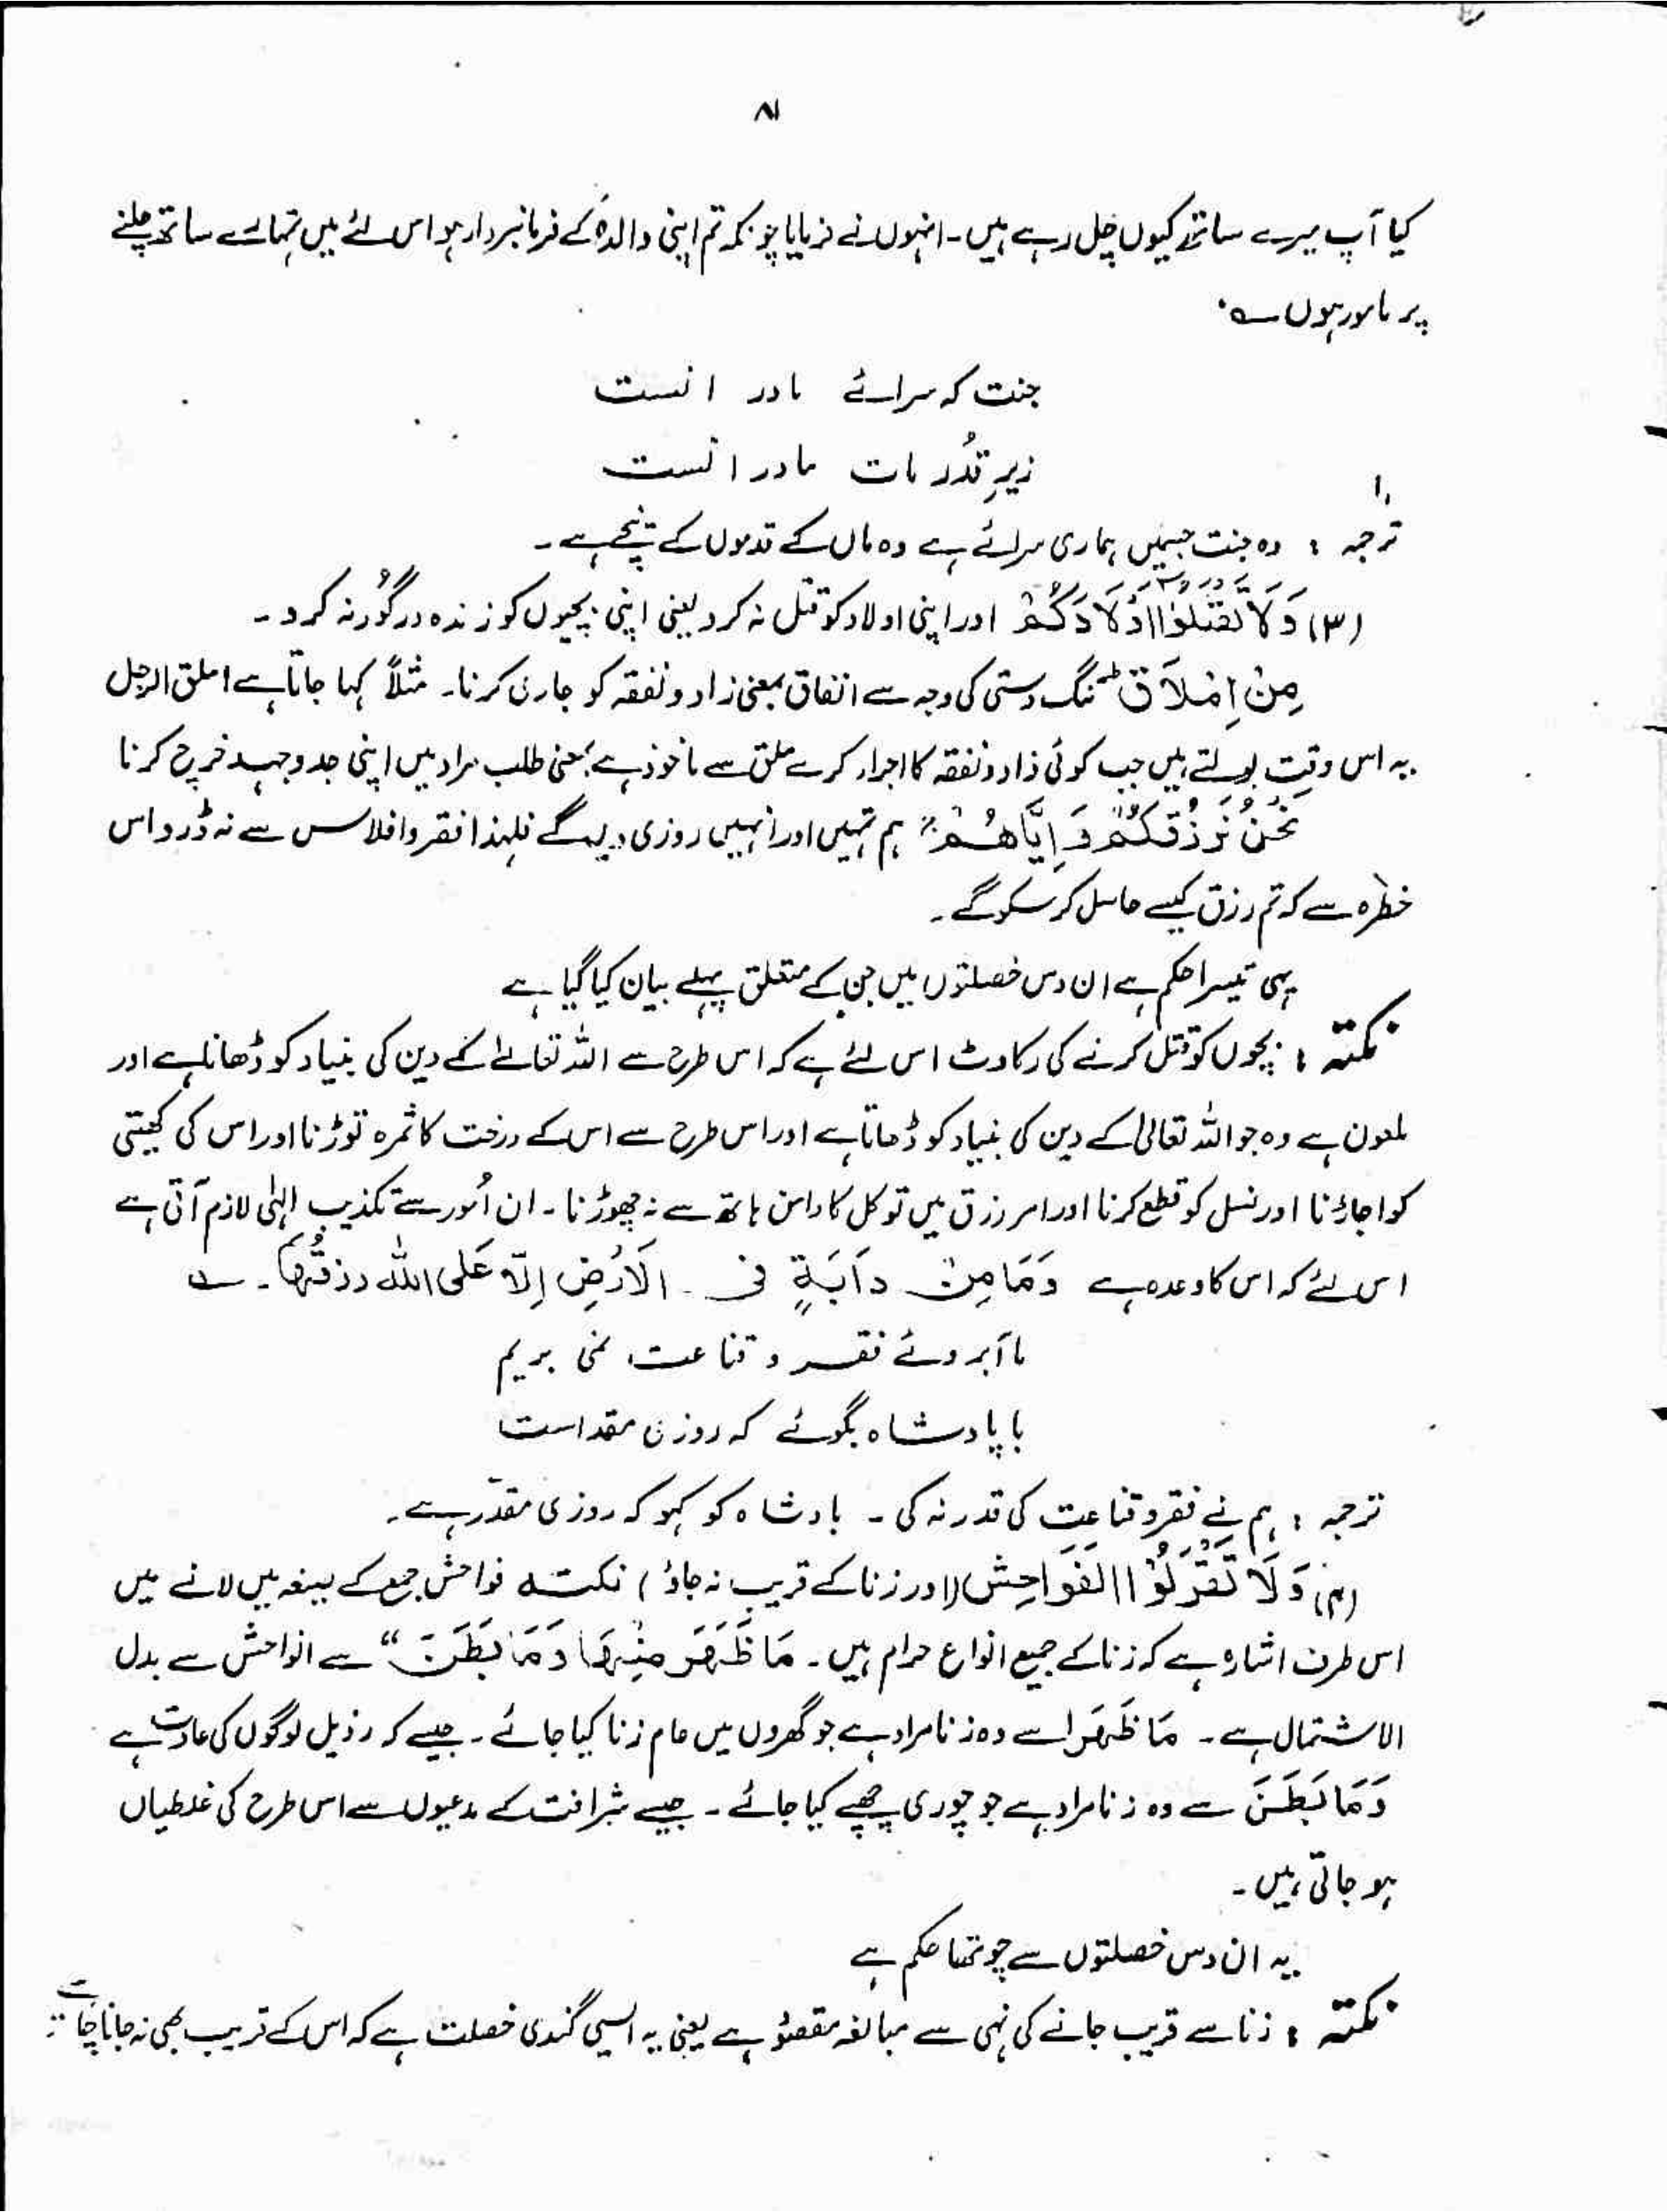 ۸
کیا آپ میرے ساتھ کیوں چل رہے ہیں۔ انہوں نے فرمایا چونکہ تم اپنی والدہ کے فرمانبردار ہو اس لئے میں تمہارے ساتھ چلنے
پر مامور ہوں ؎
جنت کہ سرائے مادر انست
زیر قدمات مادر انست
ترجمہ : وہ جنت جسمیں ہماری سرائے ہے وہ ماں کے قدموں کے نیچے ہے ۔
(۳) وَلَا تَقْتُلُوْۤا اَوْلَادَكُمْ اور اپنی اولاد کو قتل نہ کرو یعنی اپنی بچیوں کو زندہ درگور نہ کرو ۔
مِنْ اِمْلَاقٍ ط تنگ دستی کی وجہ سے انفاق بمعنی زاد و نفقہ کو جاری کرنا۔ مثلاً کہا جاتا ہے املق الرجل
یہ اس وقت بولتے ہیں جب کوئی زاد و نفقہ کا اجراء کرے ملق سے ماخوذ ہے بمعنی طلب مراد میں اپنی جدوجہد خرچ کرنا
نَحْنُ نَرْزُقُكُمْ وَ اِيَّاهُمْ ہم تمہیں اور انہیں روزی دیں گے فلہذا فقر و افلاس سے نہ ڈرو اس
خطرہ سے کہ تم رزق کیسے حاصل کر سکو گے ۔
یہی تیسرا حکم ہے ان دس خصلتوں میں جن کے متعلق پہلے بیان کیا گیا ہے
نکتہ : بچوں کو قتل کرنے کی رکاوٹ اس لئے ہے کہ اس طرح سے اللہ تعالےٰ کے دین کی بنیاد کو ڈھانا ہے اور
ملعون ہے وہ جو اللہ تعالیٰ کے دین کی بنیاد کو ڈھاتا ہے اور اس طرح سے اس کے درخت کا ثمرہ توڑنا اور اس کی کھیتی
کو اجاڑنا اور نسل کو قطع کرنا اور امر رزق میں توکل کا دامن ہاتھ سے نہ چھوڑنا ۔ ان اُمور سے تکذیب الہٰی لازم آتی ہے
اس لئے کہ اس کا وعدہ ہے وَمَا مِنْ دَآبَةٍ فی الَارْضِ اِلّا عَلَی اللّٰہ رزقُہَا ۔ ؎
ما آبروئے فقر و قناعت نمی بریم
با پادشاہ بگوئے کہ روزی مقدر است
ترجمہ : ہم نے فقر و قناعت کی قدر نہ کی ۔ بادشاہ کو کہو کہ روزی مقدّر ہے ۔
(۴) وَلَا تَقْرَبُوْا الْفَوَاحِشَ (اور زنا کے قریب نہ جاؤ) نکتہ فواحش جمع کے صیغہ میں لانے میں
اس طرف اشارہ ہے کہ زنا کے جمیع انواع حرام ہیں ۔ مَا ظَهَرَ مِنْهَا وَمَا بَطَنَ “ سے الفواحش سے بدل
الاشتمال ہے ۔ مَا ظَهَرَ سے وہ زنا مراد ہے جو گھروں میں عام زنا کیا جائے ۔ جیسے کہ رذیل لوگوں کی عادت ہے
وَمَا بَطَنَ سے وہ زنا مراد ہے جو چوری چھپے کیا جائے ۔ جیسے شرافت کے مدعیوں سے اس طرح کی غلطیاں
ہو جاتی ہیں ۔
یہ ان دس خصلتوں سے چوتھا حکم ہے
نکتہ : زنا سے قریب جانے کی نہی سے مبالغہ مقصود ہے یعنی یہ ایسی گندی خصلت ہے کہ اس کے قریب بھی نہ جانا چاہئے